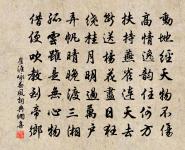 動地經天物不傷
高情逸韻住何方
扶持燕雀連天去
斷送楊花盡日狂
繞桂月明過萬戶
弄帆晴晚渡三湘
孤雲雖是無心物
借便吹教到帝鄉
崔涯詠春風詞典網